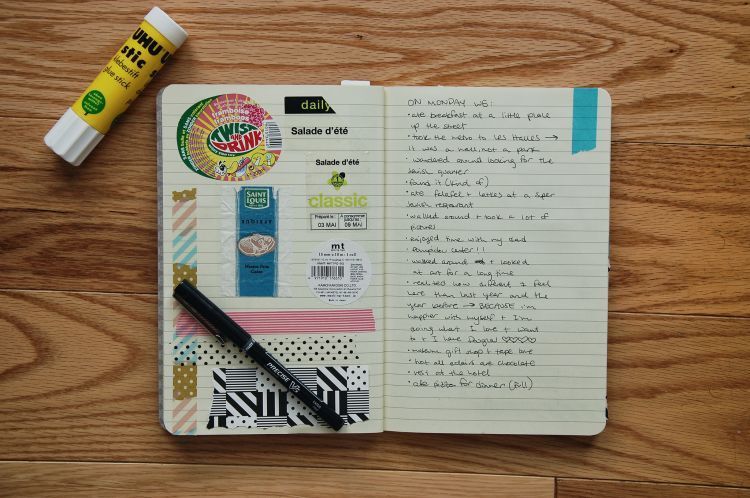 UHU
stic
klebestift
glue stick
framboise
TWIST
AND
DRINK
SAINT
LOUIS
daily
Salade d'été
Salade d'été
classic
Préparé le:
03 MAI
09 MAI
mt
PRECISE V5
ON MONDAY WE:
• ate breakfast at a little place
up the street
• took the metro to Les Halles →
it was a mall, not a park
• wandered around looking for the
Jewish quarter
• found it (kind of)
• ate falafel + latkes at a super
Jewish restaurant
• walked around + took a lot of
pictures
• enjoyed time with my dad
• Pompidou Center!!
• walked around + looked
at art for a long time
• realized how different I feel
here than last year and the
year before → BECAUSE i'm
happier with myself + I'm
doing what I love + want
to + I have Douglas ♡♡♡♡♡
• museum gift shop + tape love
• not all eclairs are chocolate
• rest at the hotel
• ate pizza for dinner